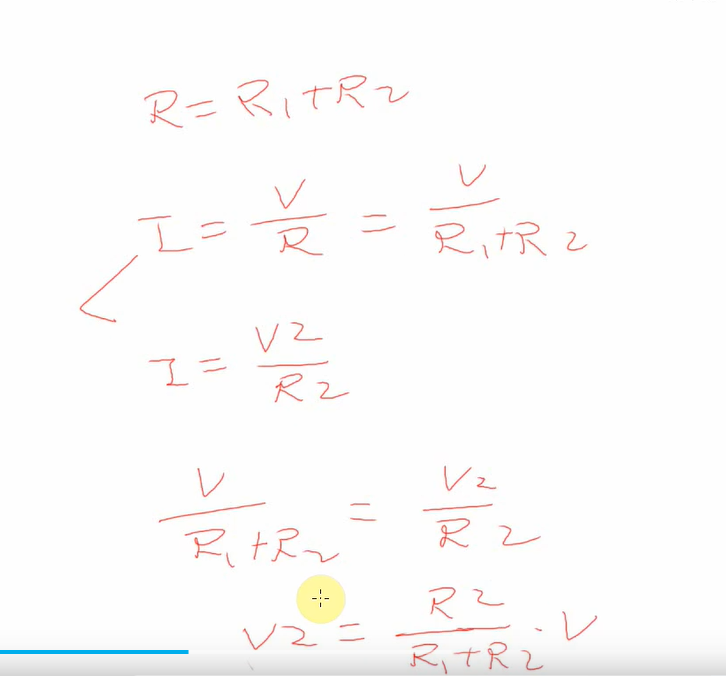 R = R1 + R2
I = V/R = V/(R1 + R2)
I = V2/R2
V/(R1 + R2) = V2/R2
V2 = R2/(R1 + R2) · V